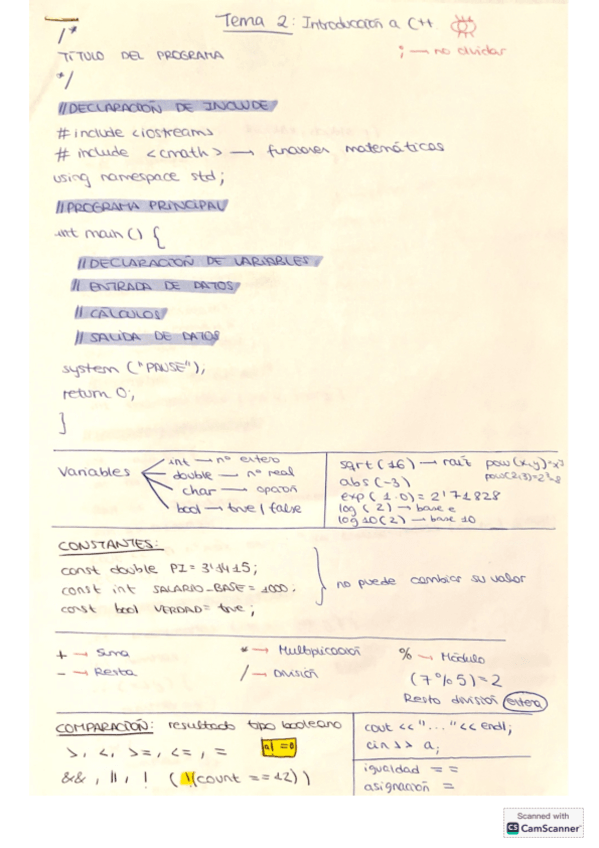 Tema 2: Introducción a C++
/*
; → no olvidar
TÍTULO DEL PROGRAMA
*/
//DECLARACIÓN DE INCLUDE
# include <iostream>
# include <cmath> → funciones matemáticas
using namespace std;
//PROGRAMA PRINCIPAL
int main() {
//DECLARACIÓN DE VARIABLES
// ENTRADA DE DATOS
// CÁLCULOS
// SALIDA DE DATOS
system ("PAUSE");
return 0;
}
Variables
int → nº entero
double → nº real
char → opción
bool → true/false
sqrt(16) → raíz pow(x,y)=x^y
abs(-3) pow(2,3)=2^3=8
exp(1.0) = 2'71828
log(2) → base e
log10(2) → base 10
CONSTANTES:
const double PI = 3'1415;
const int SALARIO_BASE = 1000.
const bool VERDAD = true;
no puede cambiar su valor
+ → Suma
- → Resta
* → Multiplicación
/ → División
% → Módulo
(7%5) = 2
Resto división entera
COMPARACIÓN: resultado tipo booleano
>, <, >=, <=, = a! =0
&&, ||, ! (!(count == 12))
cout << "..." << endl;
cin >> a;
igualdad ==
asignación =
Scanned with
CS CamScanner